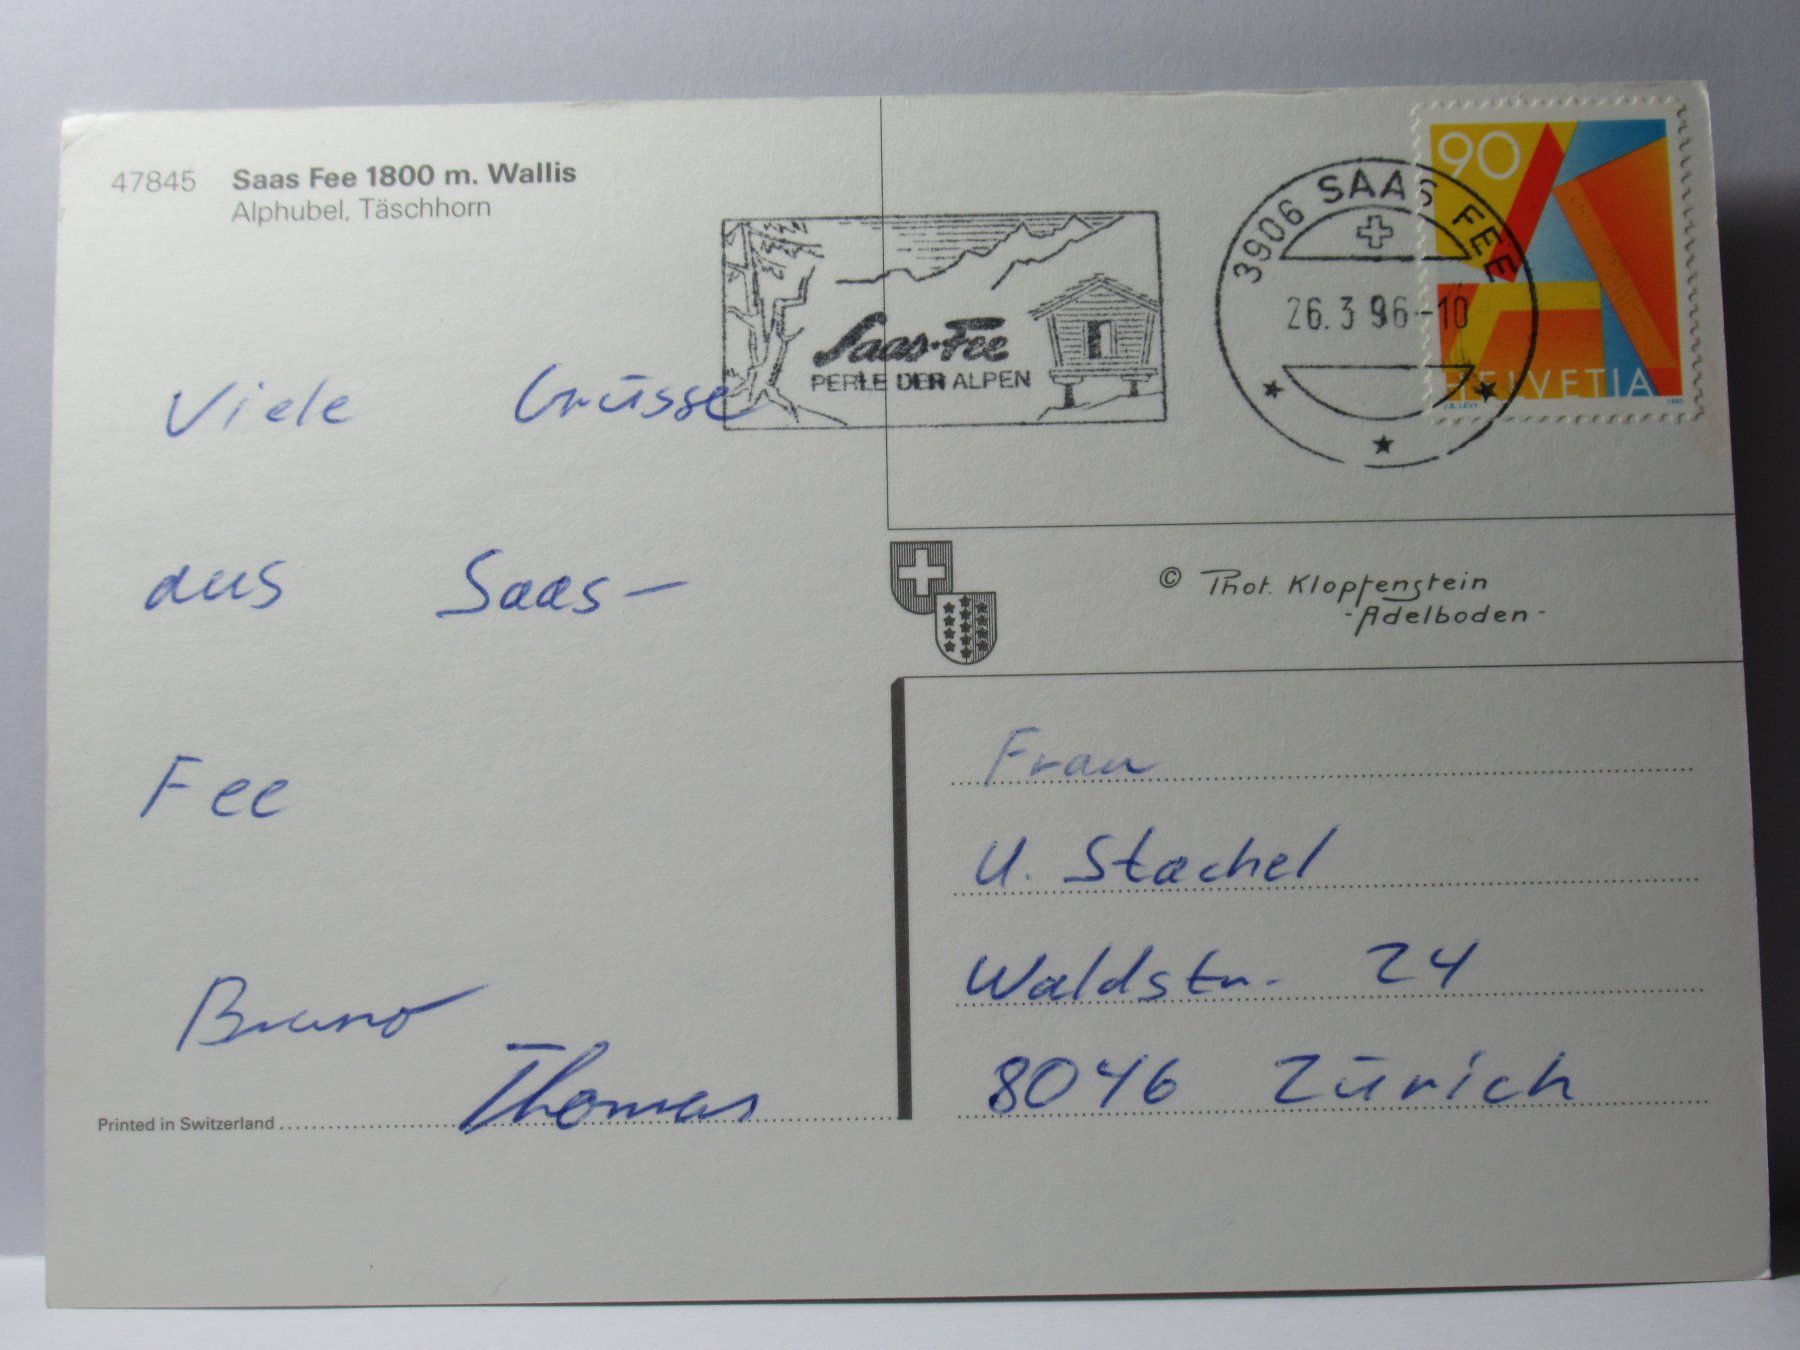 47845 Saas Fee 1800 m. Wallis
Alphubel, Täschhorn
Saas-Fee
PERLE DER ALPEN
3906 SAAS FEE
26.3.96-10
90
HELVETIA
J.B. LEVY 1995
Viele Grüsse
aus Saas-
Fee
Bruno
Thomas
Printed in Switzerland
© Phot. Klopfenstein
-Adelboden-
Frau
U. Stachel
Waldstr. 24
8046 Zürich